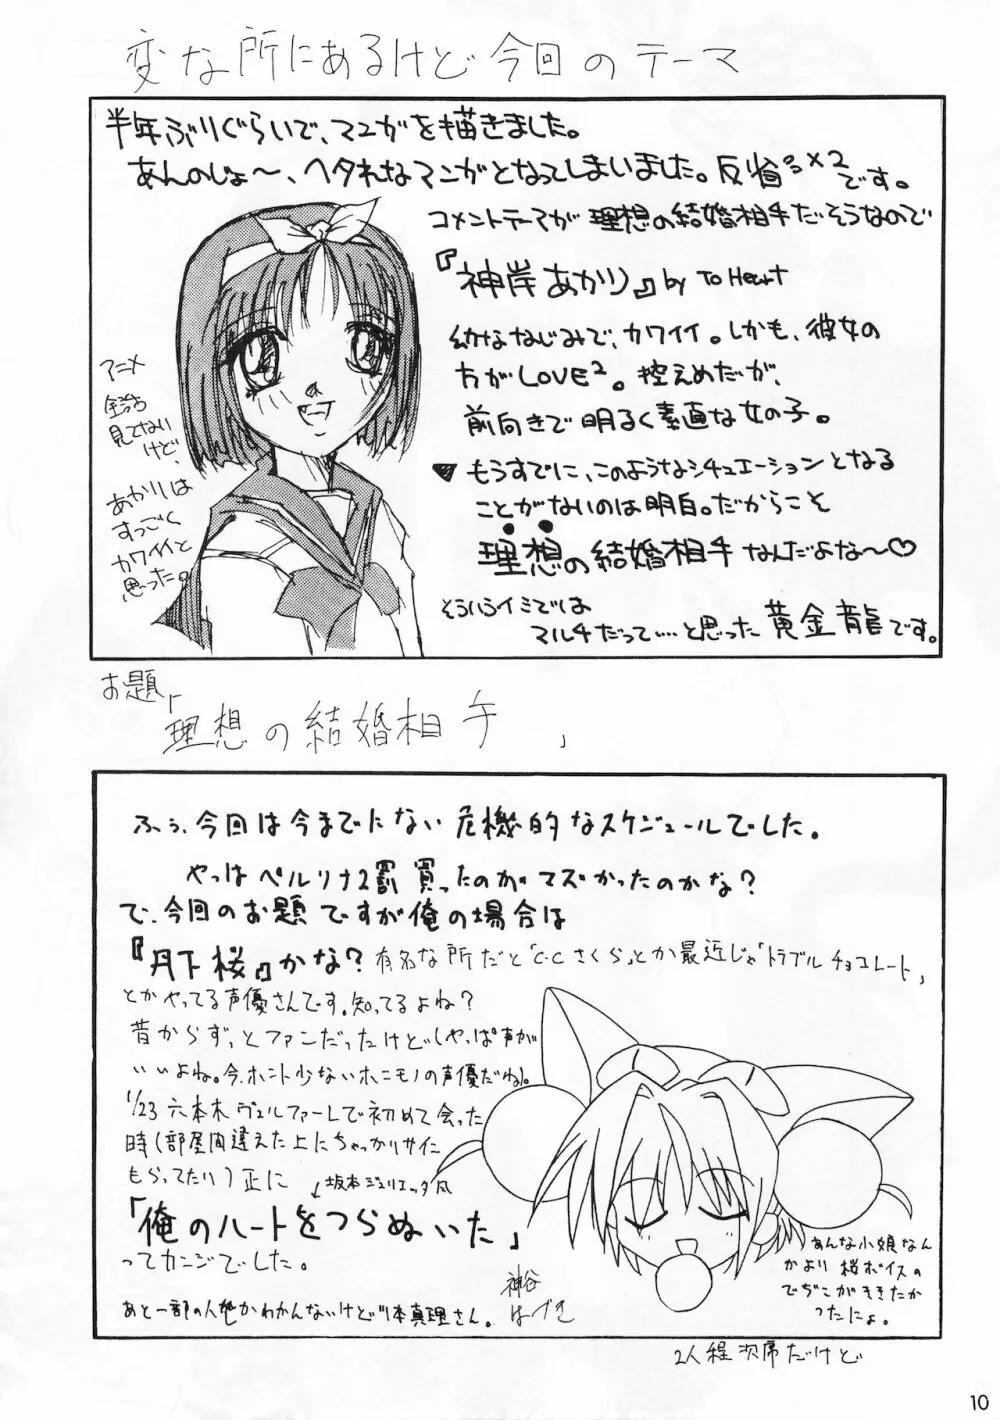 変な所にあるけど今回のテーマ
半年ぶりぐらいで、マンガを描きました。
あんのじょ〜、ヘタれなマンガとなってしまいました。反省×2です。
コメントテーマが理想の結婚相手だそうなので
『神岸あかり』by To Heart
幼ななじみで、カワイイ。しかも、彼女の
方がLOVE²。控えめだが、
前向きで明るく素直な女の子。
▼もうすでに、このようなシチュエーションとなる
ことがないのは明白。だからこそ
理想の結婚相手なんだよな〜♡
そういうイミでは
マルチだって…と思った黄金龍です。
アニメ
全話
見てない
けど、
あかりは
すっごく
カワイイと
思った。
お題「
理想の結婚相手」
ふぅ、今回は今までにない危機的なスケジュールでした。
やっぱペルソナ2罰買ったのがマズかったのかな?
で、今回のお題ですが俺の場合は
『丹下桜』かな?有名な所だと「C・Cさくら」とか最近じゃ「トラブルチョコレート」
とかやってる声優さんです。知ってるよね?
昔からずっとファンだったけど(やっぱ声が
いいよね。今、ホント少ないホンモノの声優だね)。
1/23六本木ヴェルファーレで初めて会った
時(部屋間違えた上にちゃっかりサイン
もらってたり)正に
↙坂本ジュリエッタ風
「俺のハートをつらぬいた」
ってカンジでした。
あと一部の人しかわかんないけど川本真理さん。
神谷
はづき
あんな小娘なん
かより桜ボイスの
でぢこがききたか
ったにょ。
2人程次席だけど
10